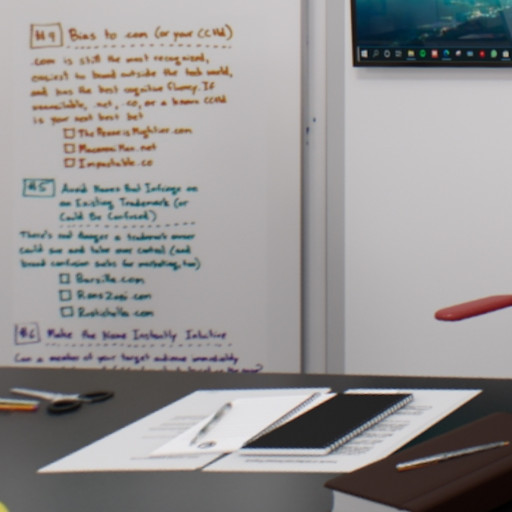 #4 Bias to .com (or your CCTld)
.com is still the most recognized,
easiest to brand outside the tech world,
and has the best cognitive fluency. If
unavailable, .net, .co, or a known CCTld
is your next best bet
ThePenneisMightier.com
MacaroniMan.net
Impastable.co
#5 Avoid Names that Infringe on
an Existing Trademark (or
Could Be Confused)
There's real danger a trademark owner
could sue and take over control (and
brand confusion sucks for marketing, too)
Barzilla.com
RanaZoni.com
Rostichella.com
#6 Make the Name Instantly Intuitive
Can a member of your target audience immediately